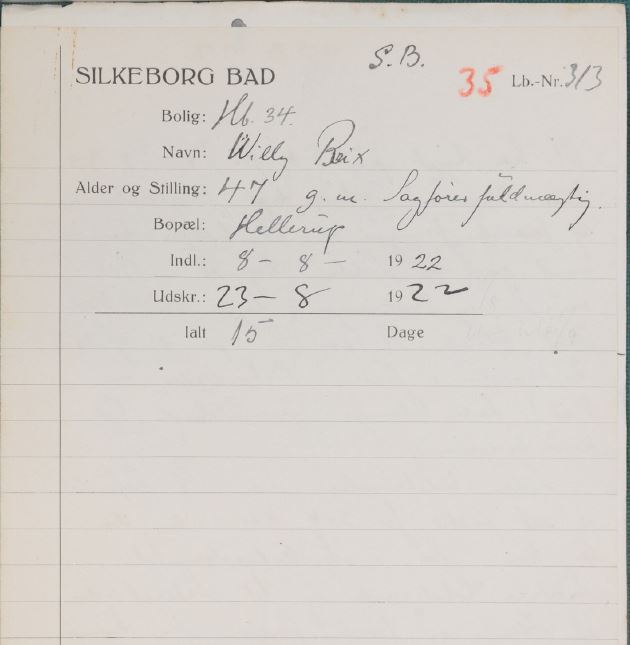 S.B.
SILKEBORG BAD 35 Lb.-Nr. 313
Bolig: Hb. 34.
Navn: Willy Brix
Alder og Stilling: 47 g.m. Sagførerfuldmægtig.
Bopæl: Hellerup
Indl.: 8 - 8 - 1922
Udskr.: 23 - 8 1922
Ialt 15 Dage